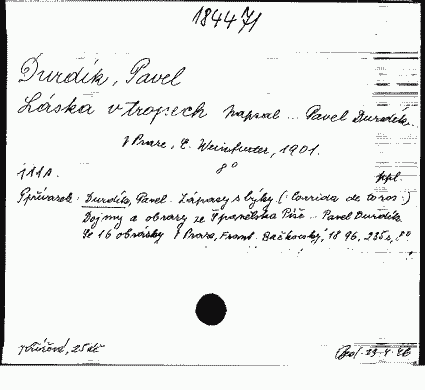 184471
Durdík, Pavel
Láska v tropech napsal .. Pavel Durdík.
V Praze, E. Weinfurter, 1901.
8°
111 A. ppl.
Přívazek: Durdík, Pavel. Zápasy s býky. (Corrida de toros.)
Dojmy a obrazy ze Španělska Píše .. Pavel Durdík.
Se 16 obrázky V Praze, Frant. Bačkovský, 1896, 235 s, 8°
25 Kč